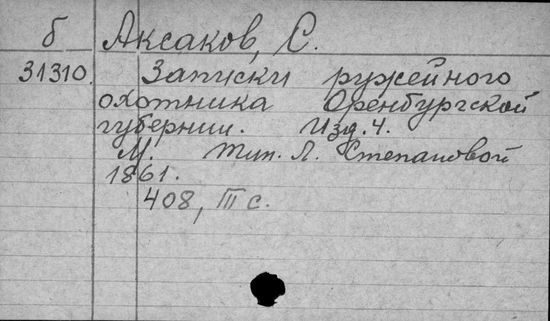 б Аксаков, С.
31310. Записки ружейного
охотника Оренбургской
губернии. Изд. 4.
М. Тип. Л. Степановой
1861.
408, III с.